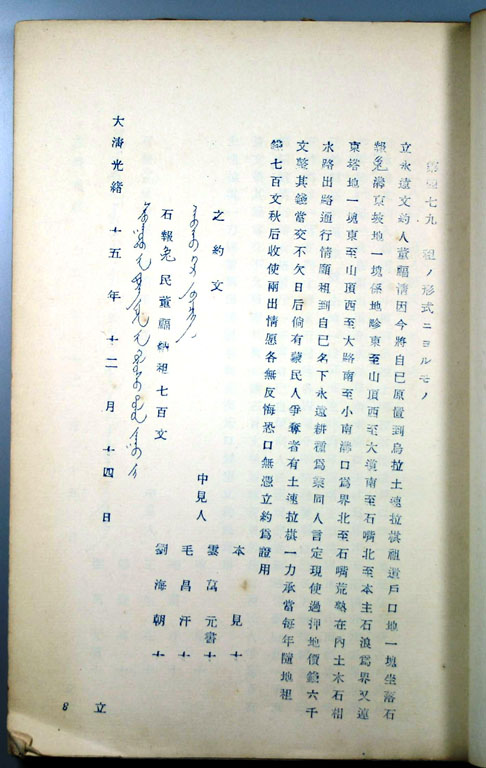 七九 租ノ形式ニヨルモノ
立永遠文約人董福清因今將自己原置到烏拉土速拉棋祖遺戶口地一塊坐落石
報兔溝東坡地一塊係地畛東至山頂西至大道南至石嘴北至本主石浪爲界又連
東塔地一塊東至山頂西至大路南至小南溝口爲界北至石嘴荒熟在內土木石相
水路出路通行情願租到自己名下永遠耕種爲業同人言定現使過押地價錢六千
文整其錢當交不欠日后倘有蒙民人爭奪者有土速拉棋一力承當每年隨地租
錢七百文秋后收使兩出情愿各無反悔恐口無憑立約爲證用
本見十
中見人 雲萬元書十
毛昌汗十
劉海朝十
之約文
石報兔民董願納租七百文
大淸光緖十五年十二月十四日
立
8